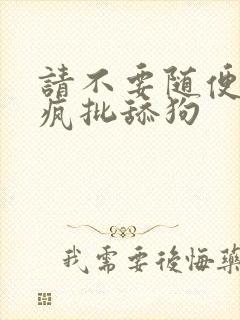 請不要随便
疯批舔狗
我需要後悔藥